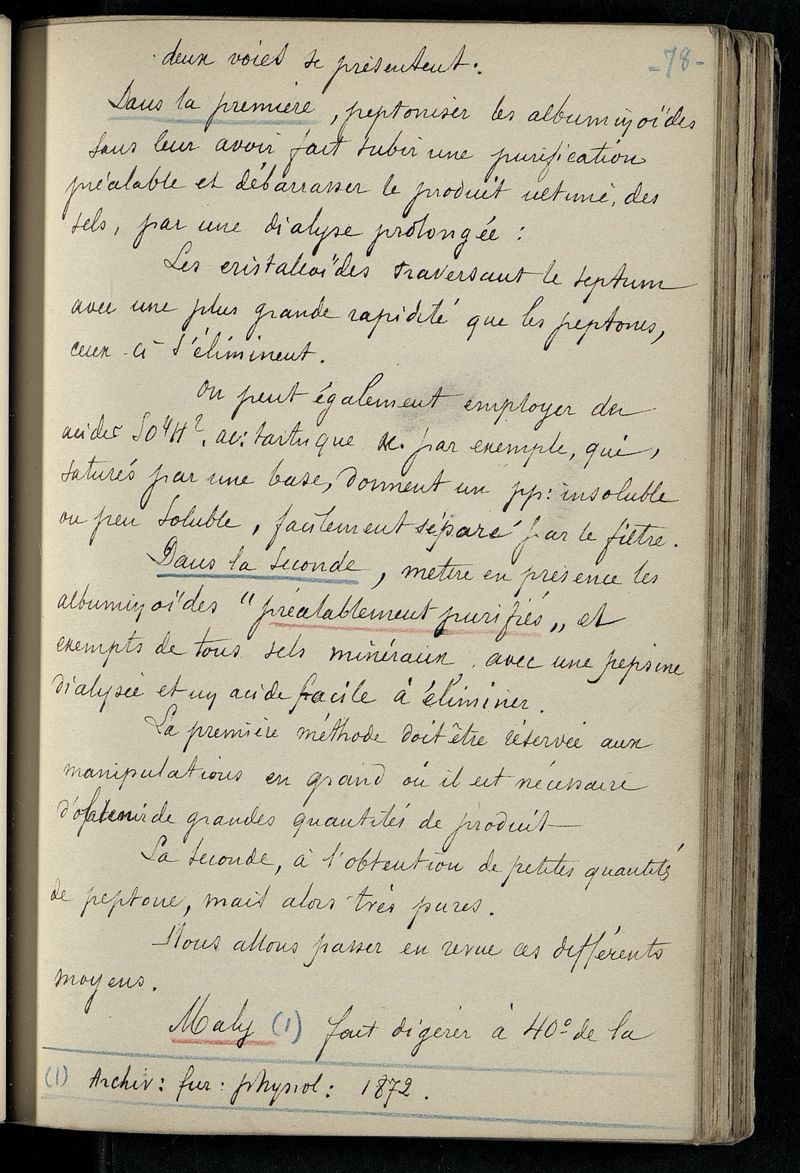 -78-
deux voies se présentent:
Dans la première, peptoniser les albuminoïdes
sans leur avoir fait subir une purification
préalable et débarrasser le produit ultime, des
sels, par une dialyse prolongée :
Les cristalloïdes traversant le septum
avec une plus grande rapidité que les peptones,
ceux-ci s'éliminent.
On peut également employer des
acides SO⁴H², ac: tartrique &. par exemple, qui,
saturés par une base, donnent un pp: insoluble
ou peu soluble, facilement séparé par le filtre.
Dans la seconde, mettre en présence les
albuminoïdes "préalablement purifiés„ et
exempts de tous sels minéraux, avec une pepsine
dialysée et un acide facile à éliminer.
La première méthode doit être réservée aux
manipulations en grand où il est nécessaire
d'obtenir de grandes quantités de produit—
La seconde, à l'obtention de petites quantités
de peptone, mais alors très pures.
Nous allons passer en revue ces différents
moyens.
Maly (1) fait digérer à 40° de la
(1) Archiv: fur: physiol: 1872.